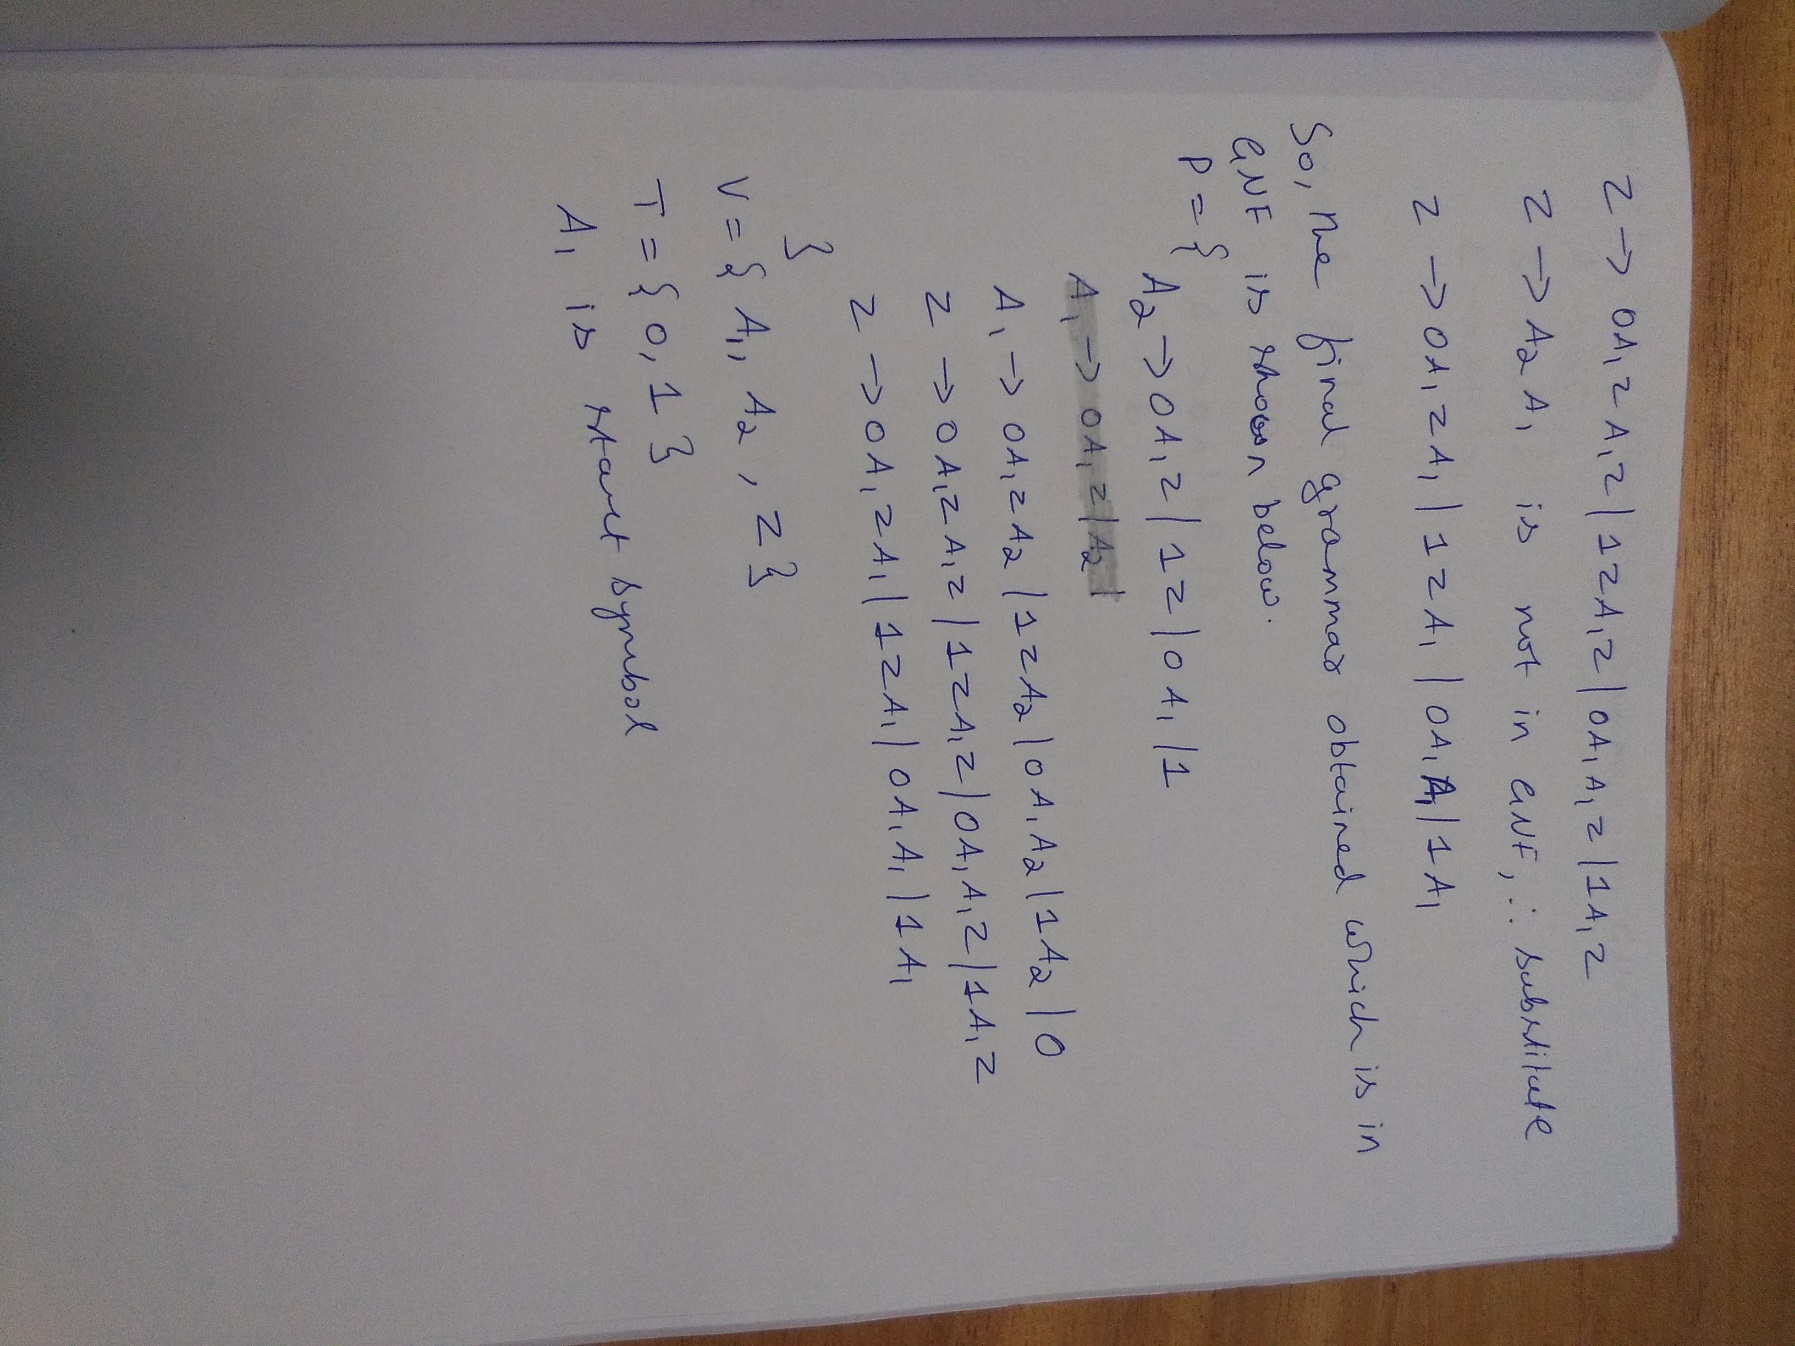 Z → 0A₁ZA₁Z | 1ZA₁Z | 0A₁A₁Z | 1A₁Z
Z → A₂A₁ is not in GNF, ∴ substitute
Z → 0A₁ZA₁ | 1ZA₁ | 0A₁A₁ | 1A₁
So, the final grammar obtained which is in
GNF is shown below.
P = {
A₂ → 0A₁Z | 1Z | 0A₁ | 1
A₁ → 0A₁Z | A₂ |
A₁ → 0A₁ZA₂ | 1ZA₂ | 0A₁A₂ | 1A₂ | 0
Z → 0A₁ZA₁Z | 1ZA₁Z | 0A₁A₁Z | 1A₁Z
Z → 0A₁ZA₁ | 1ZA₁ | 0A₁A₁ | 1A₁
}
V = { A₁, A₂, Z }
T = { 0, 1 }
A₁ is start symbol